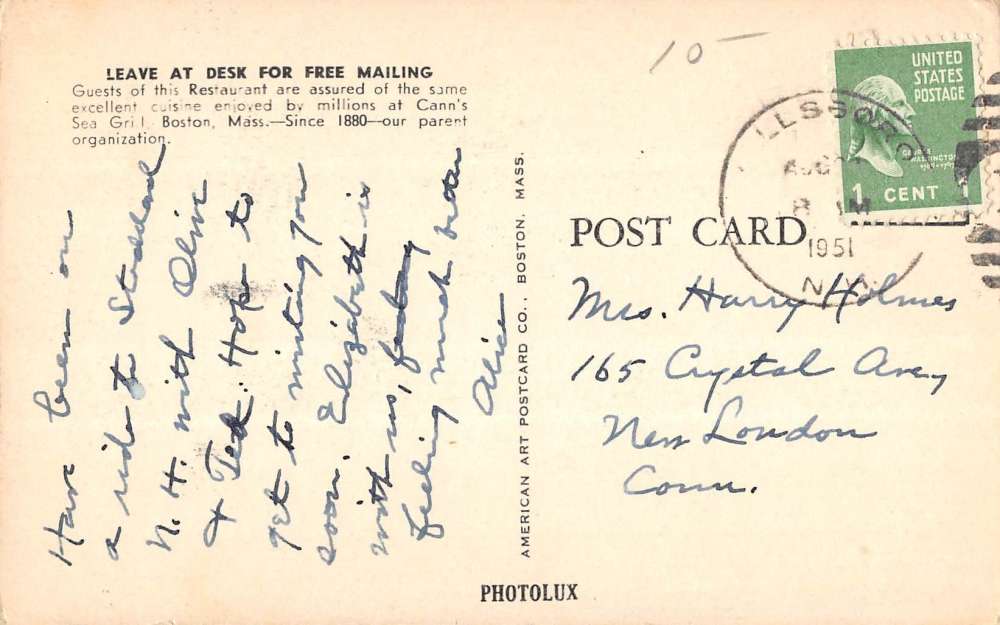 10 —
LEAVE AT DESK FOR FREE MAILING
Guests of this Restaurant are assured of the same
excellent cuisine enjoyed by millions at Cann's
Sea Grill, Boston, Mass.—Since 1880—our parent
organization.
Have been on
a ride to Stoddard
N. H. with Olive
& Ted. Hope to
get to
you
soon. Elizabeth is
with us,
feeling much better
Alice
AMERICAN ART POSTCARD CO., BOSTON, MASS.
PHOTOLUX
UNITED
STATES
POSTAGE
GEORGE
WASHINGTON
1 CENT 1
LLSBORO
AUG
8 AM
1951
N.H.
POST CARD
Mrs. Harry Holmes
165 Crystal Ave,
New London
Conn.